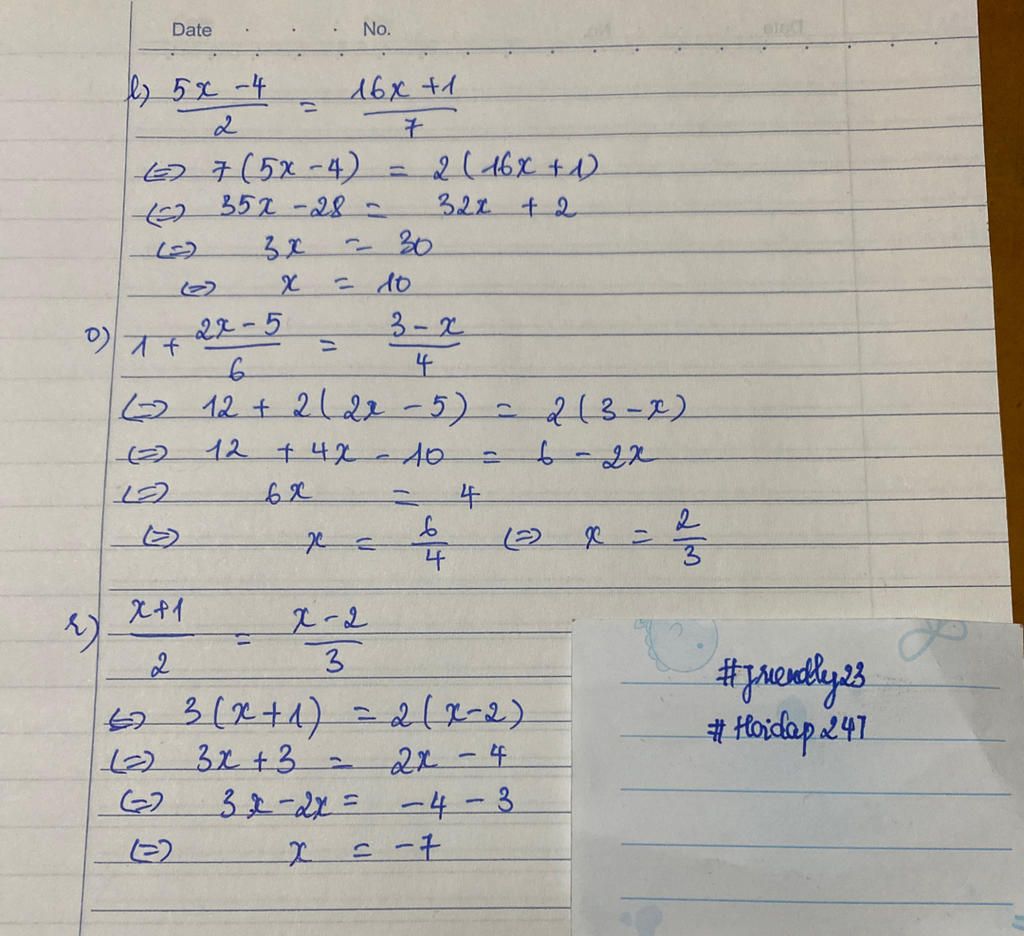 Date . . . No.
l) (5x - 4)/2 = (16x + 1)/7
<=> 7(5x - 4) = 2(16x + 1)
<=> 35x - 28 = 32x + 2
<=> 3x = 30
<=> x = 10
o) 1 + (2x - 5)/6 = (3 - x)/4
<=> 12 + 2(2x - 5) = 2(3 - x)
<=> 12 + 4x - 10 = 6 - 2x
<=> 6x = 4
<=> x = 6/4 <=> x = 2/3
r) (x + 1)/2 = (x - 2)/3
<=> 3(x + 1) = 2(x - 2)
<=> 3x + 3 = 2x - 4
<=> 3x - 2x = -4 - 3
<=> x = -7
#friendly23
#Hoidap247